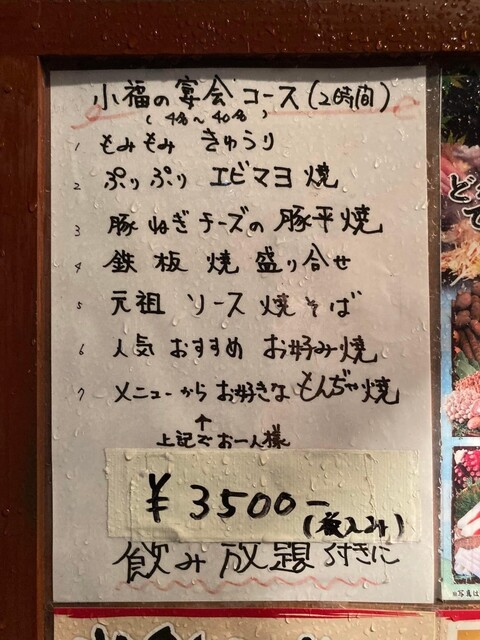 小福の宴会コース(2時間)
(4名～40名)
1 もみもみ きゅうり
2 ぷりぷり エビマヨ焼
3 豚ねぎチーズの豚平焼
4 鉄板焼盛り合せ
5 元祖 ソース焼そば
6 人気 おすすめ お好み焼
7 メニューからお好きなもんぢゃ焼
↑
上記でお一人様
¥3500-
(税込み)
飲み放題付きに
ど
て